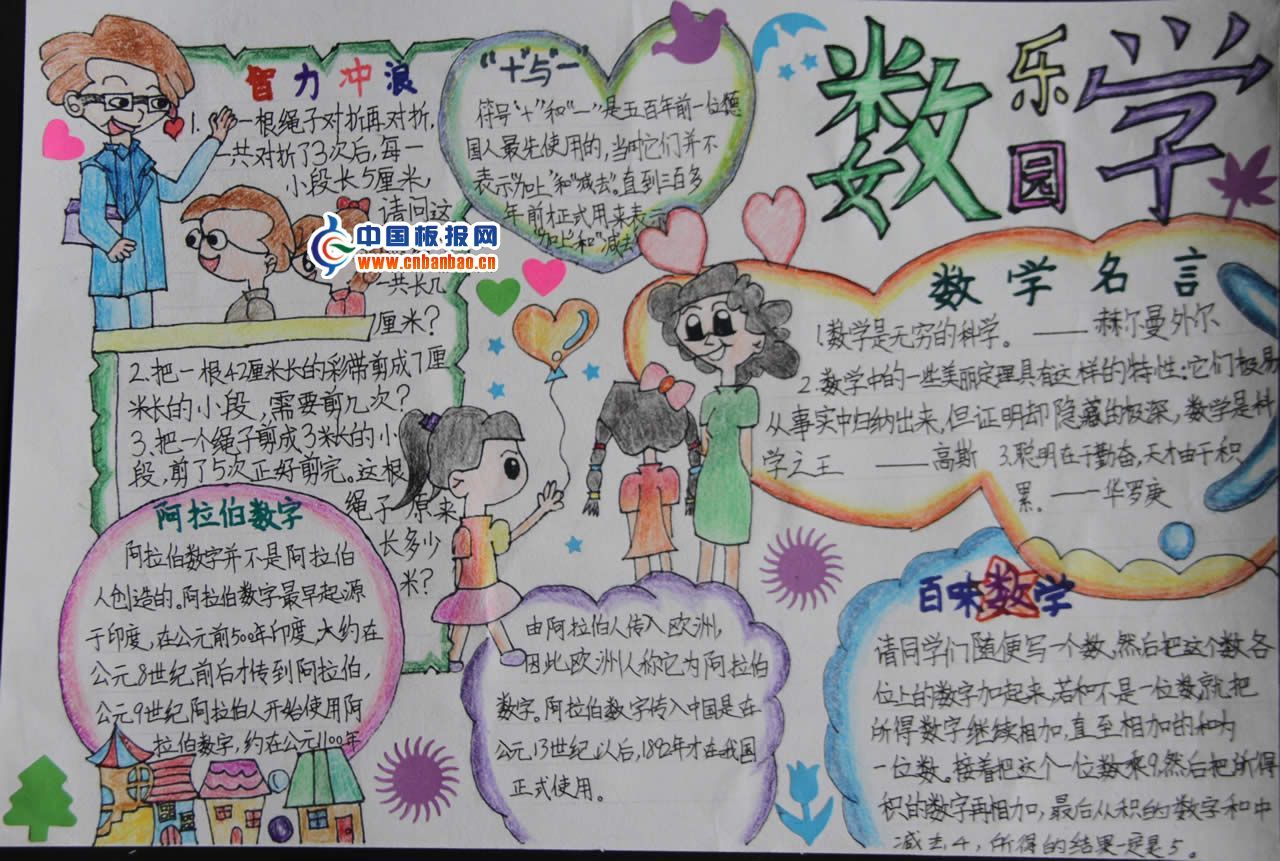 数学
乐园
智力冲浪
1.一根绳子对折再对折,
一共对折了3次后,每一
小段长5厘米,
请问这
一共长几
厘米?
2.把一根42厘米长的彩带剪成7厘
米长的小段,需要剪几次?
3.把一个绳子剪成3米长的小
段,剪了5次正好剪完。这根
绳子原来
长多少
米?
“十”与“一”
符号“十”和“一”是五百年前一位德
国人最先使用的,当时它们并不
表示“加上”和“减去”。直到三百多
年前才正式用来表示
“加上”和“减去”
中国板报网
www.cnbanbao.cn
数学名言
1.数学是无穷的科学。 ——赫尔曼外尔
2.数学中的一些美丽定理具有这样的特性:它们极易
从事实中归纳出来,但证明却隐藏的极深,数学是科
学之王 ——高斯 3.聪明在于勤奋,天才由于积
累。——华罗庚
阿拉伯数字
阿拉伯数字并不是阿拉伯
人创造的。阿拉伯数字最早起源
于印度,在公元前500年印度,大约在
公元8世纪前后才传到阿拉伯,
公元9世纪,阿拉伯人开始使用阿
拉伯数字,约在公元1100年
由阿拉伯人传入欧洲,
因此欧洲人称它为阿拉伯
数字。阿拉伯数字传入中国是在
公元,13世纪以后,1892年才在我国
正式使用。
百味数学
请同学们随便写一个数,然后把这个数各
位上的数字加起来,若和不是一位数,就把
所得数字继续相加,直至相加的和为
一位数。接着把这个一位数乘9,然后把所得
积的数字再相加,最后从积的数字和中
减去4,所得的结果一定是5。